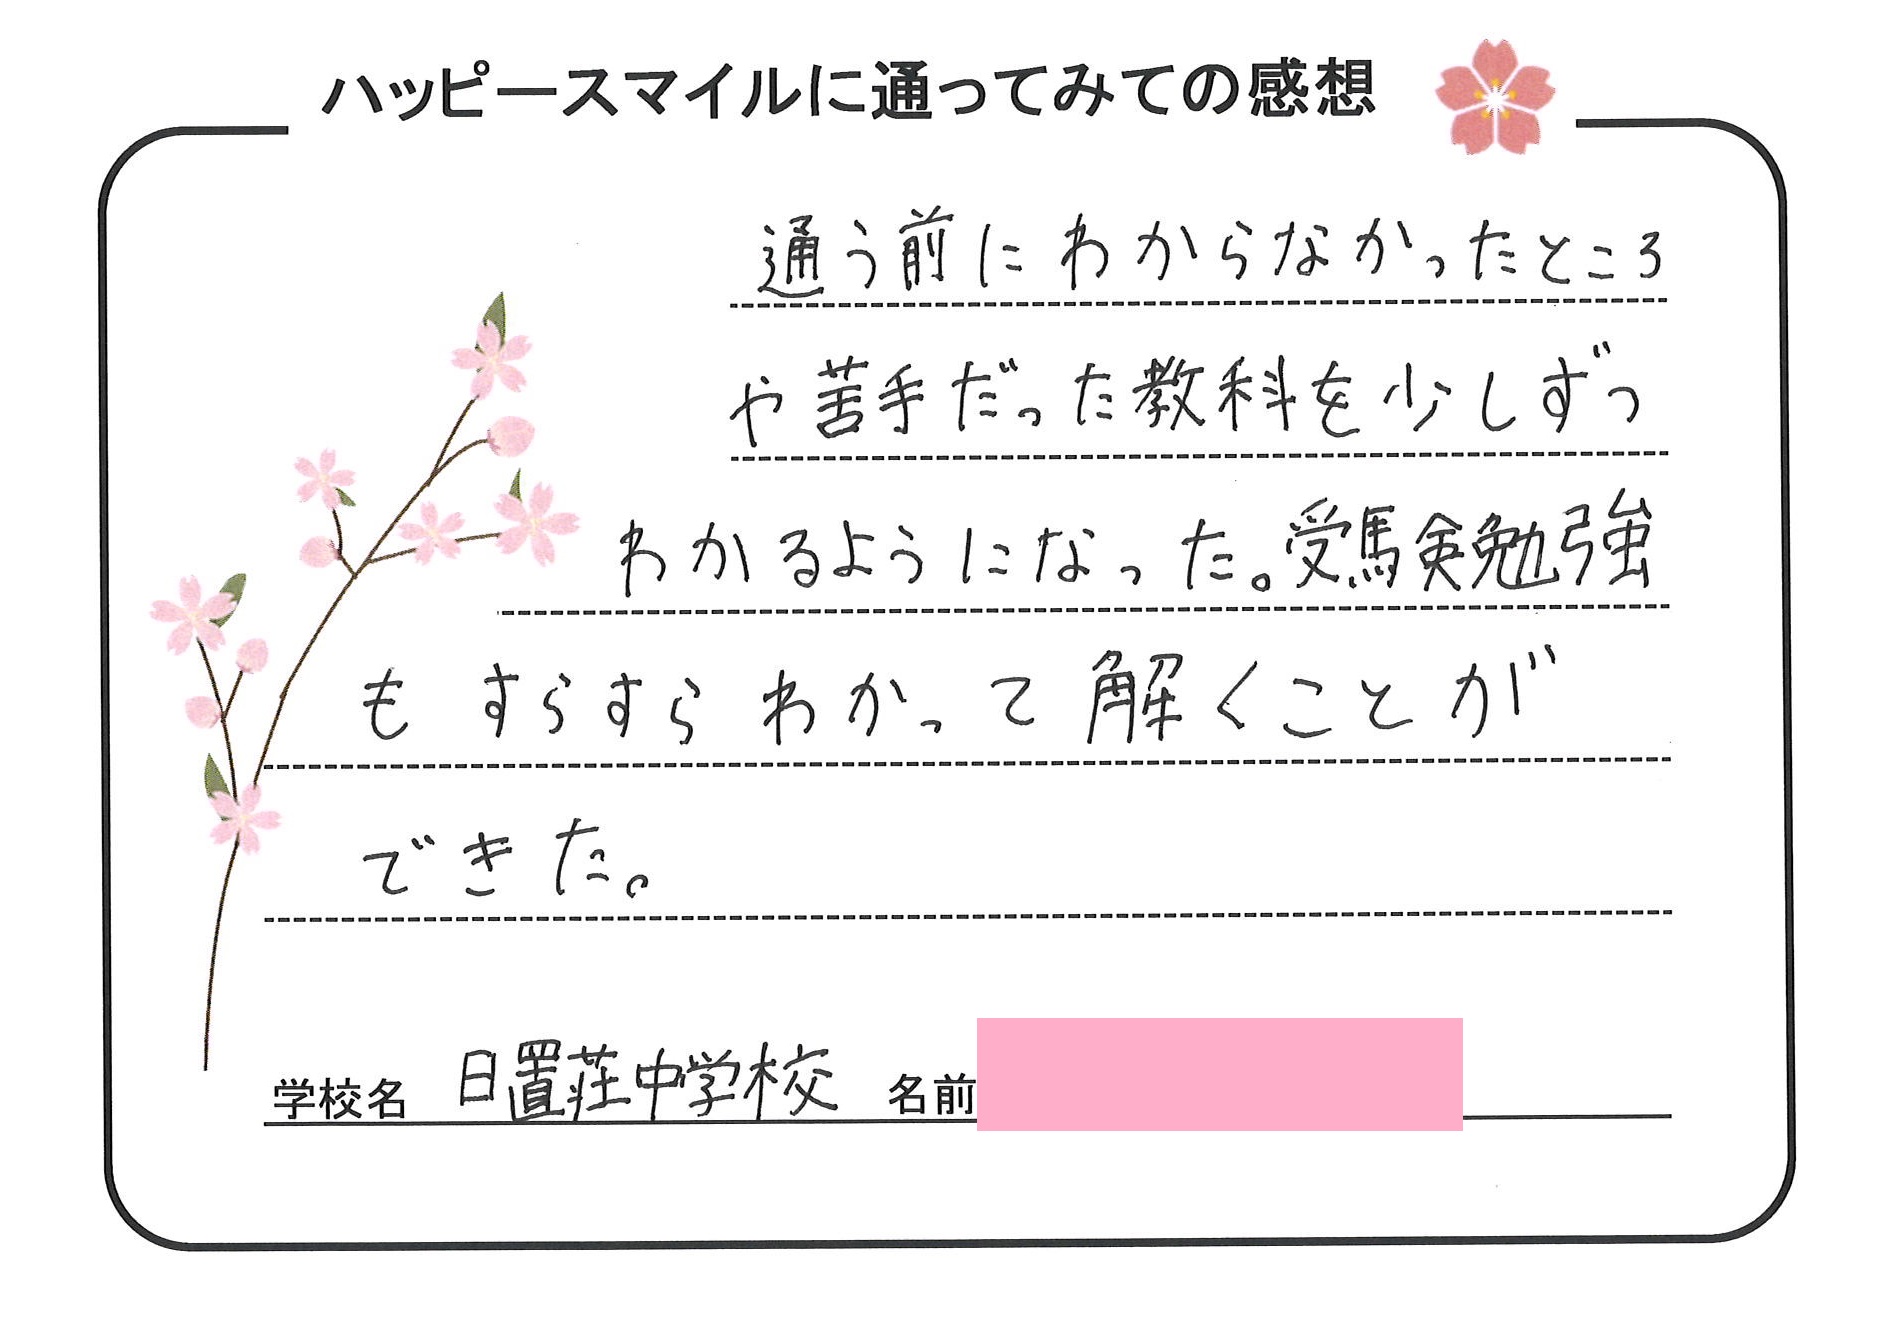 ハッピースマイルに通ってみての感想
通う前にわからなかったところ
や苦手だった教科を少しずつ
わかるようになった。受験勉強
もすらすらわかって解くことが
できた。
学校名 日置荘中学校 名前